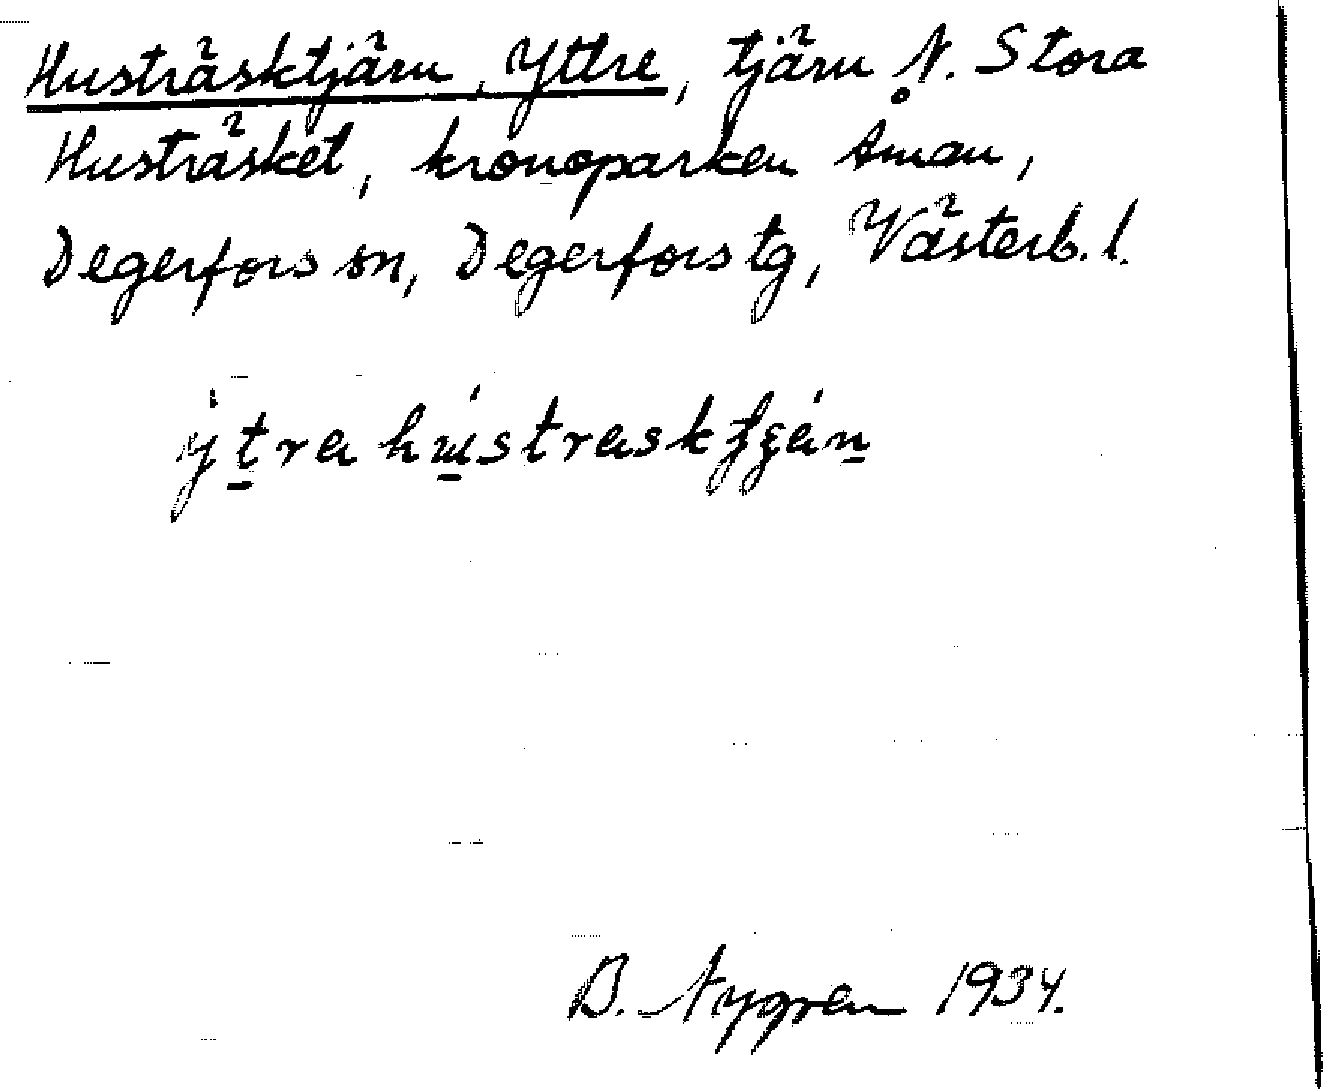 Husträsktjärn, Yttre, tjärn N. Stora
Husträsket, kronoparken Åman,
Degerfors sn, Degerfors tg, Västerb. l.
ýtra hústraskʃʒán
B. Nygren 1934.